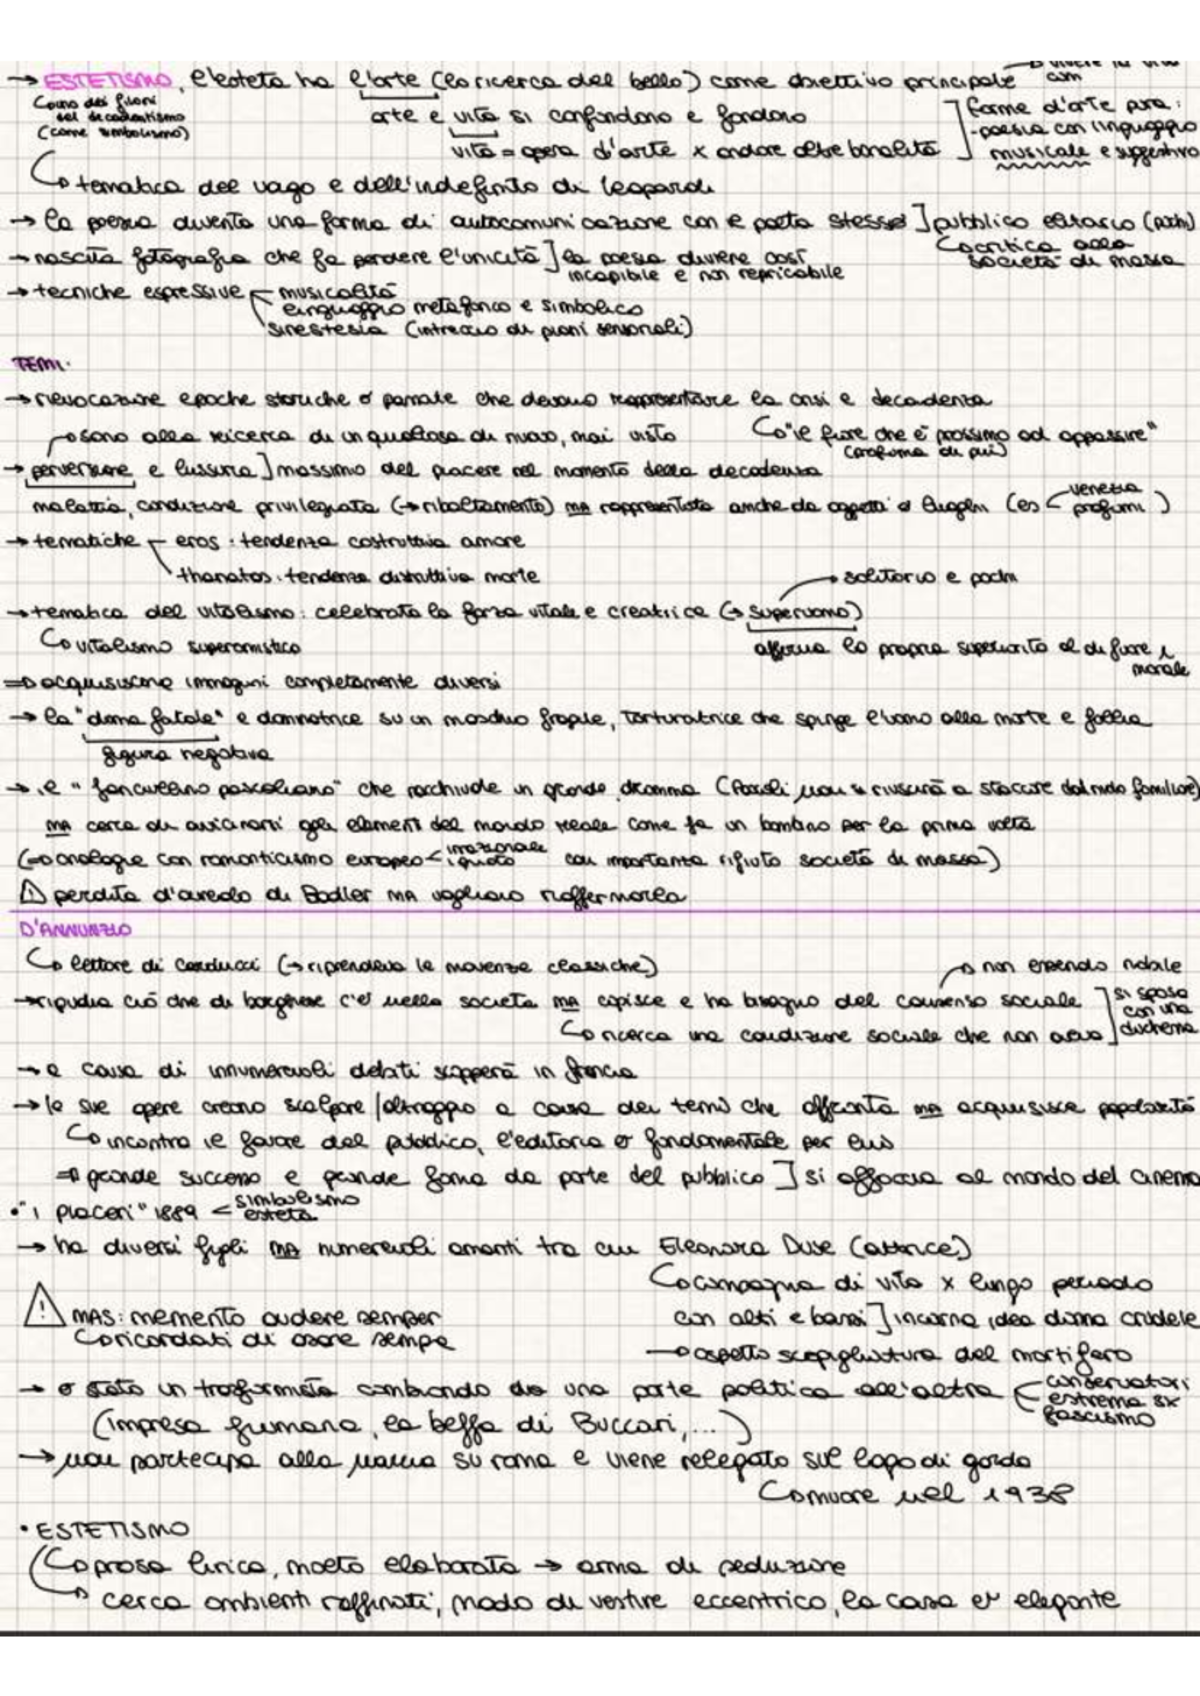 → ESTETISMO, l'esteta ha l'arte (la ricerca del bello) come obiettivo principale
uno dei filoni
del decadentismo
(come simbolismo)
arte e vita si confondono e fondono
vita = opera d'arte x andare oltre banalità
forme d'arte pura:
-poesia con linguaggio
musicale e suggestivo
↳ tematica del vago e dell'indefinito di leopardi
→ la poesia diventa una forma di autocomunicazione con il poeta stesso] pubblico elitario (pochi)
↳ critica alla
società di massa
→ nascita fotografia che fa perdere l'unicità] la poesia diviene così
incapibile e non replicabile
→ tecniche espressive musicalità
linguaggio metaforico e simbolico
sinestesia (intreccio di piani sensoriali)
TEMI:
→ rievocazione epoche storiche o passate che devono rappresentare la crisi e decadenza
sono alla ricerca di un qualcosa di nuovo, mai visto
↳ "il fiore che è prossimo ad appassire"
(profuma di più)
→ perversione e lussuria] massimo del piacere nel momento della decadenza
malattia, condizione privilegiata (→ ribaltamento) MA rappresentata anche da oggetti o luoghi (es venezia
profumi)
→ tematiche eros: tendenza costruttiva amore
thanatos: tendenza distruttiva morte
→ solitario e pochi
→ tematica del vitalismo: celebrata la forza vitale e creatrice (→ superuomo)
↳ vitalismo superomistico
afferma la propria superiorità al di fuori
morale
⇒ acquisiscono immagini completamente diversi
→ la "donna fatale" e dominatrice su un maschio fragile, torturatrice che spinge l'uomo alla morte e follia
figura negativa
→ il "fanciullino pascoliano" che racchiude un grande dramma (Pascoli non riuscirà a staccare dal nido familiare)
MA cerca di avvicinarsi agli elementi del mondo reale come fa un bambino per la prima volta
(⇒ analogie con romanticismo europeo < irrazionale
ignoto con importante rifiuto società di massa)
⚠ perdita d'areola di Bodler MA vogliono riaffermarla
D'ANNUNZIO
↳ lettore di Carducci (→ riprendeva le movenze classiche)
→ non essendo nobile
→ ripudia ciò che di borghese c'è nella società MA capisce e ha bisogno del consenso sociale
↳ ricerca una condizione sociale che non aveva
si sposa
con una
duchessa
→ a causa di innumerevoli debiti scapperà in francia
→ le sue opere creano scalpore/oltraggio a causa dei temi che affronta MA acquisisce popolarità
↳ incontra il favore del pubblico, l'editoria è fondamentale per lui
⇒ grande successo e grande fama da parte del pubblico] si affaccia al mondo del cinema
• "i piaceri" 1889 < simbolismo
esteta
→ ha diversi figli MA numerevoli amanti tra cui Eleonora Duse (attrice)
↳ compagna di vita x lungo periodo
con alti e bassi] incarna idea donna crudele
→ aspetto scapigliatura del mortifero
⚠ MAS: memento audere semper
↳ ricordati di osare sempre
→ è stato un trasformista cambiando da una parte politica all'altra conservatori
estrema sx
fascismo
(impresa fiumana, la beffa di Buccari,...)
→ non partecipa alla marcia su roma e viene relegato sul lago di garda
↳ muore nel 1938
• ESTETISMO
↳ prosa lirica, molto elaborata → arma di seduzione
↳ cerca ambienti raffinati, modo di vestire eccentrico, la casa è elegante